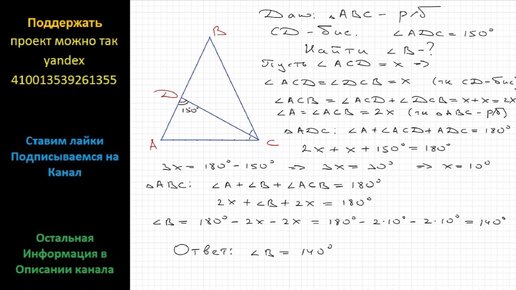 Поддержать
проект можно так
yandex
410013539261355
Ставим лайки
Подписываемся на
Канал
Остальная
Информация в
Описании канала
B
D
150°
A
C
Дано: △ABC – р/б
CD – бис. ∠ADC = 150°
Найти ∠B – ?
Пусть ∠ACD = x ⇒
∠ACD = ∠DCB = x (тк CD – бис)
∠ACB = ∠ACD + ∠DCB = x + x = 2x
∠A = ∠ACB = 2x (тк △ABC – р/б)
△ADC: ∠A + ∠ACD + ADC = 180°
2x + x + 150° = 180°
3x = 180° – 150° ⇒ 3x = 30° ⇒ x = 10°
△ABC: ∠A + ∠B + ∠ACB = 180°
2x + ∠B + 2x = 180°
∠B = 180° – 2x – 2x = 180° – 2·10° – 2·10° = 140°
Ответ: ∠B = 140°